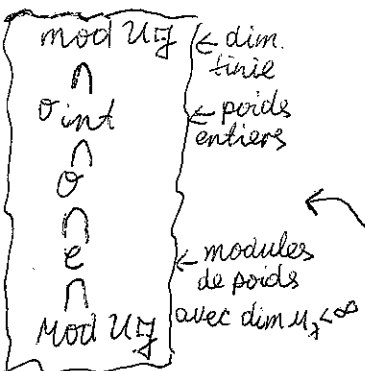 mod U𝔤 ← dim. finie
∩
𝒪int ← poids entiers
∩
𝒪
∩
𝒞 ← modules de poids
∩ avec dim M_λ < ∞
Mod U𝔤
←